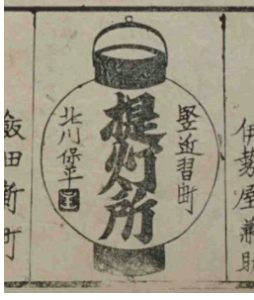 伊勢屋兼助
竪近習町
提灯所
北川保平
飯田新町